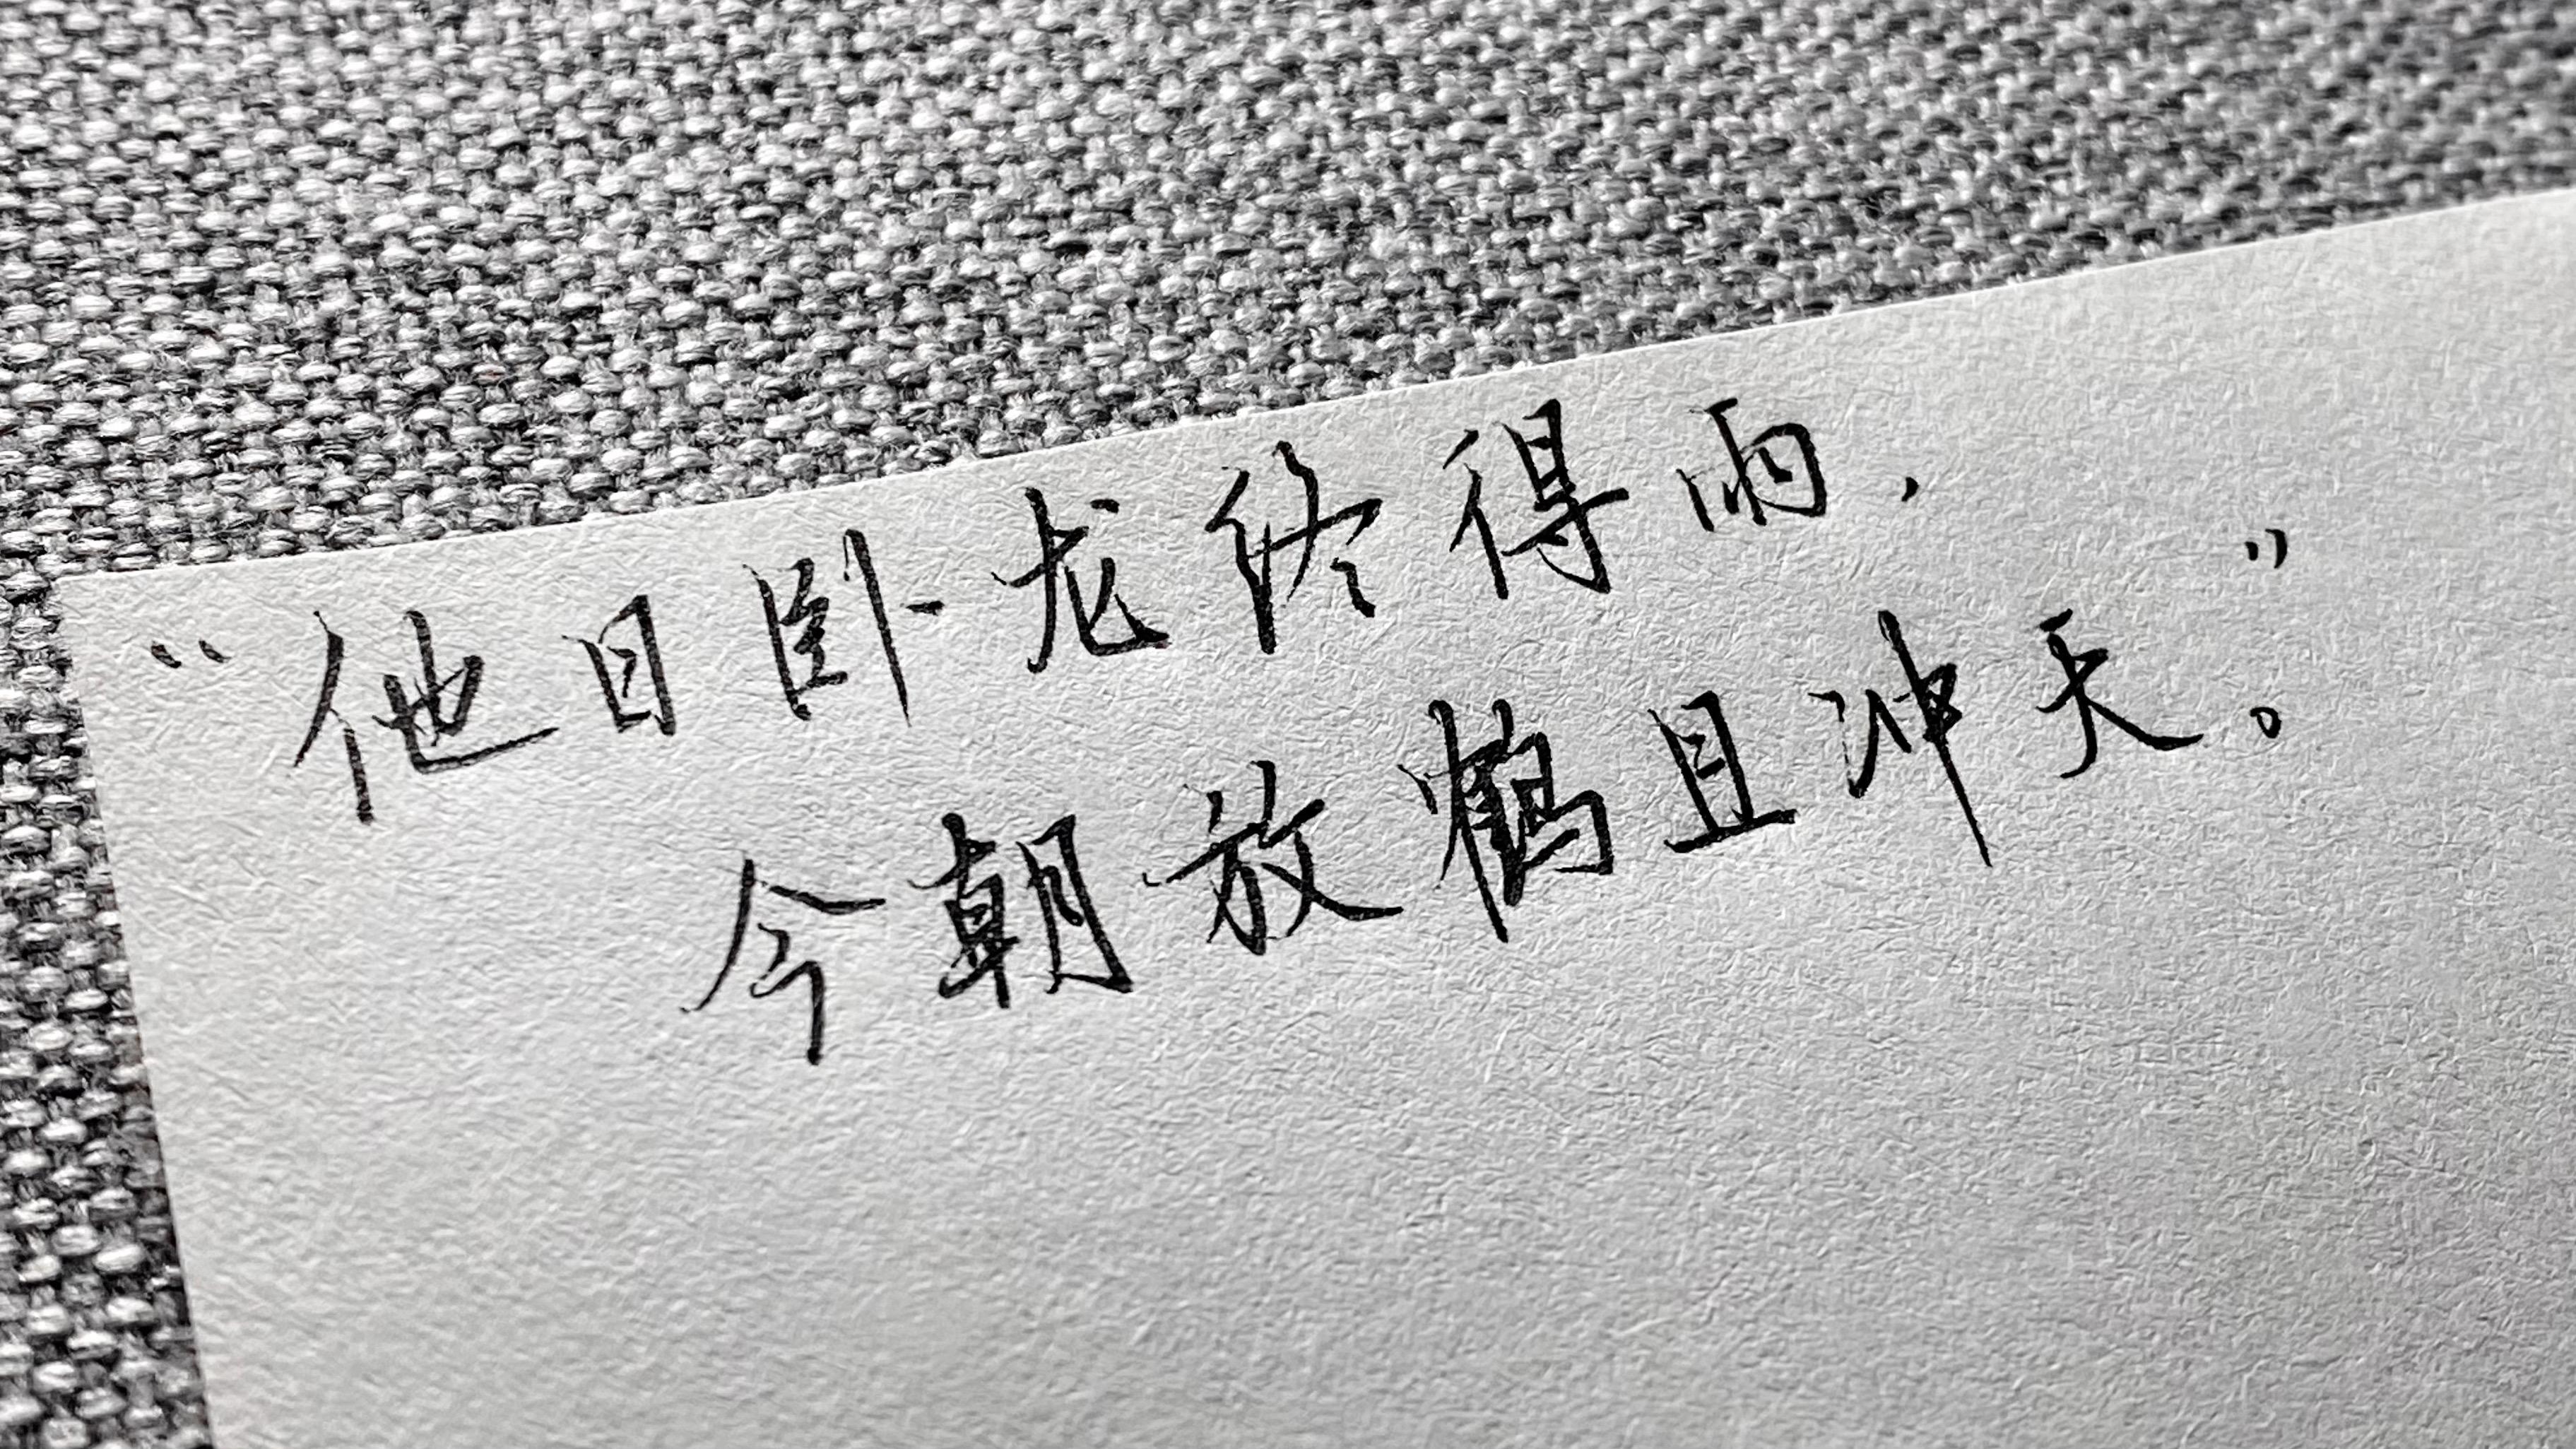 “他日卧龙终得雨，
今朝放鹤且冲天。”